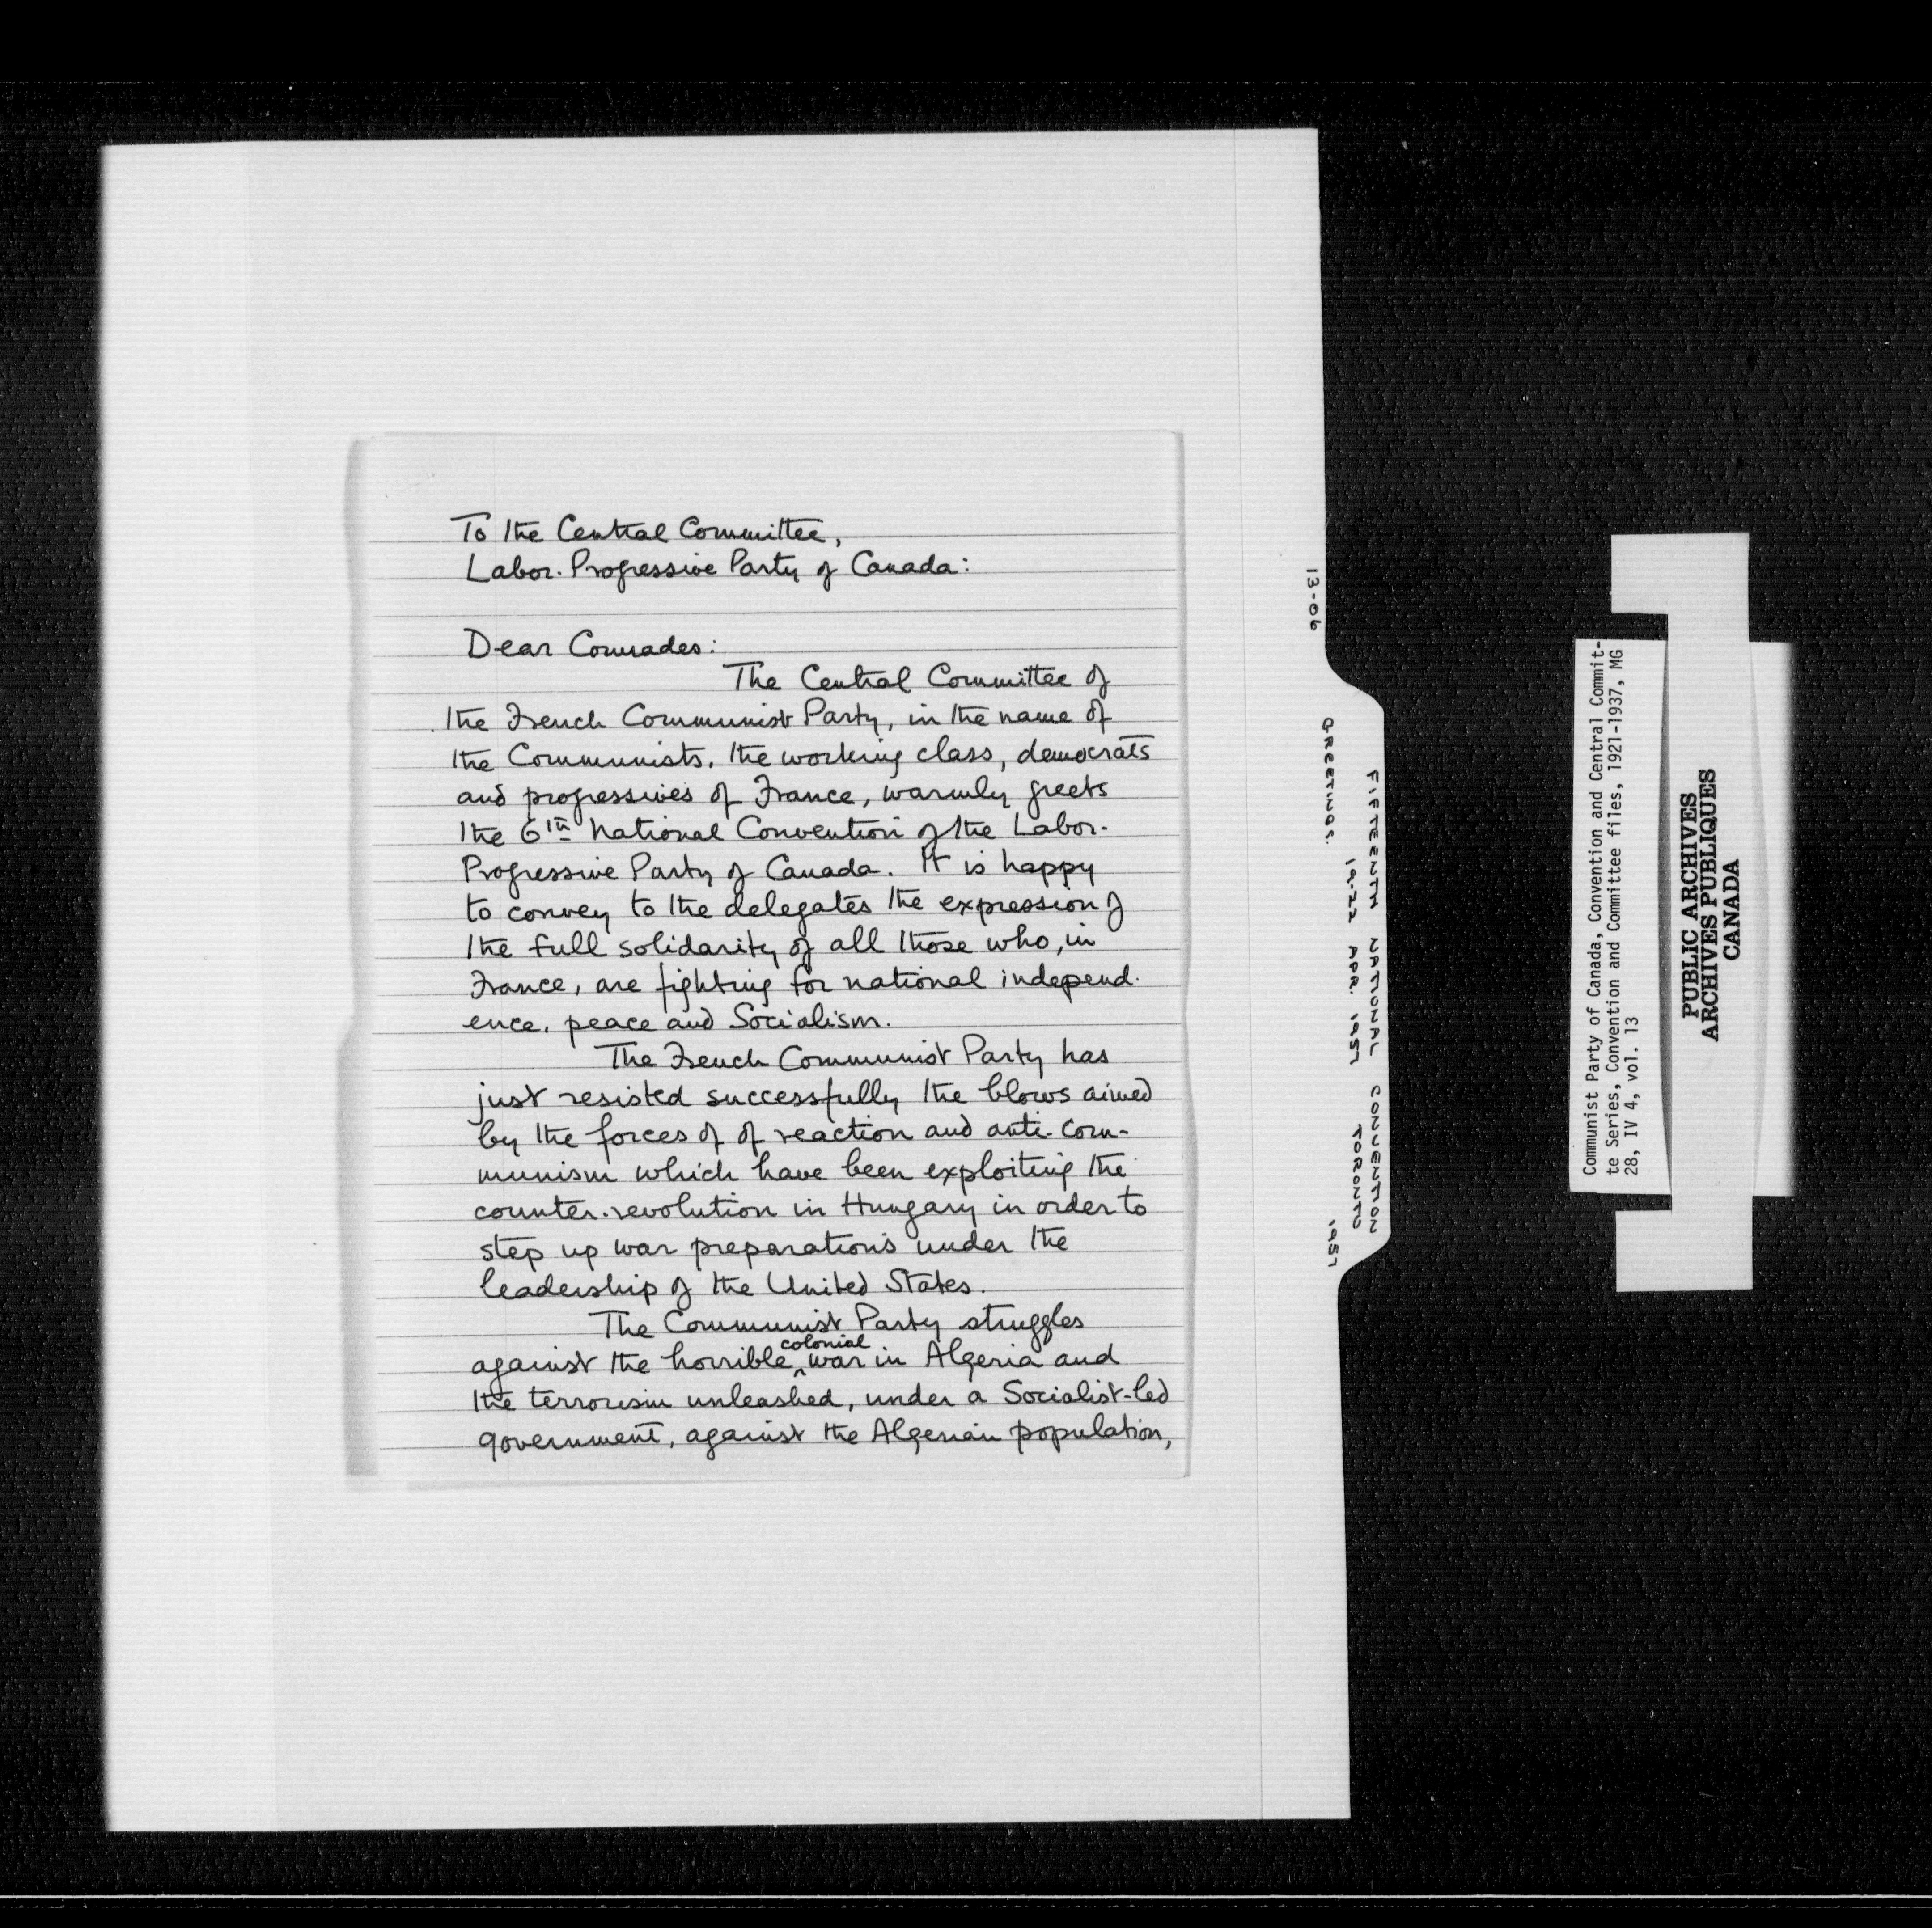 To the Central Committee,
Labor-Progressive Party of Canada:
Dear Comrades:
The Central Committee of
the French Communist Party, in the name of
the Communists, the working class, democrats
and progressives of France, warmly greets
the 6th National Convention of the Labor-
Progressive Party of Canada. It is happy
to convey to the delegates the expression of
the full solidarity of all those who, in
France, are fighting for national independ-
ence, peace and Socialism.
The French Communist Party has
just resisted successfully the blows aimed
by the forces of of reaction and anti-Com-
munism which have been exploiting the
counter-revolution in Hungary in order to
step up war preparations under the
leadership of the United States.
The Communist Party struggles
against the horrible colonial war in Algeria and
the terrorism unleashed, under a Socialist-led
government, against the Algerian population,
13-06
GREETINGS.
1957
FIFTEENTH NATIONAL CONVENTION
19-22 APR. 1957 TORONTO
Communist Party of Canada, Convention and Central Commit-
te Series, Convention and Committee files, 1921-1937, MG
28, IV 4, vol. 13
PUBLIC ARCHIVES
ARCHIVES PUBLIQUES
CANADA